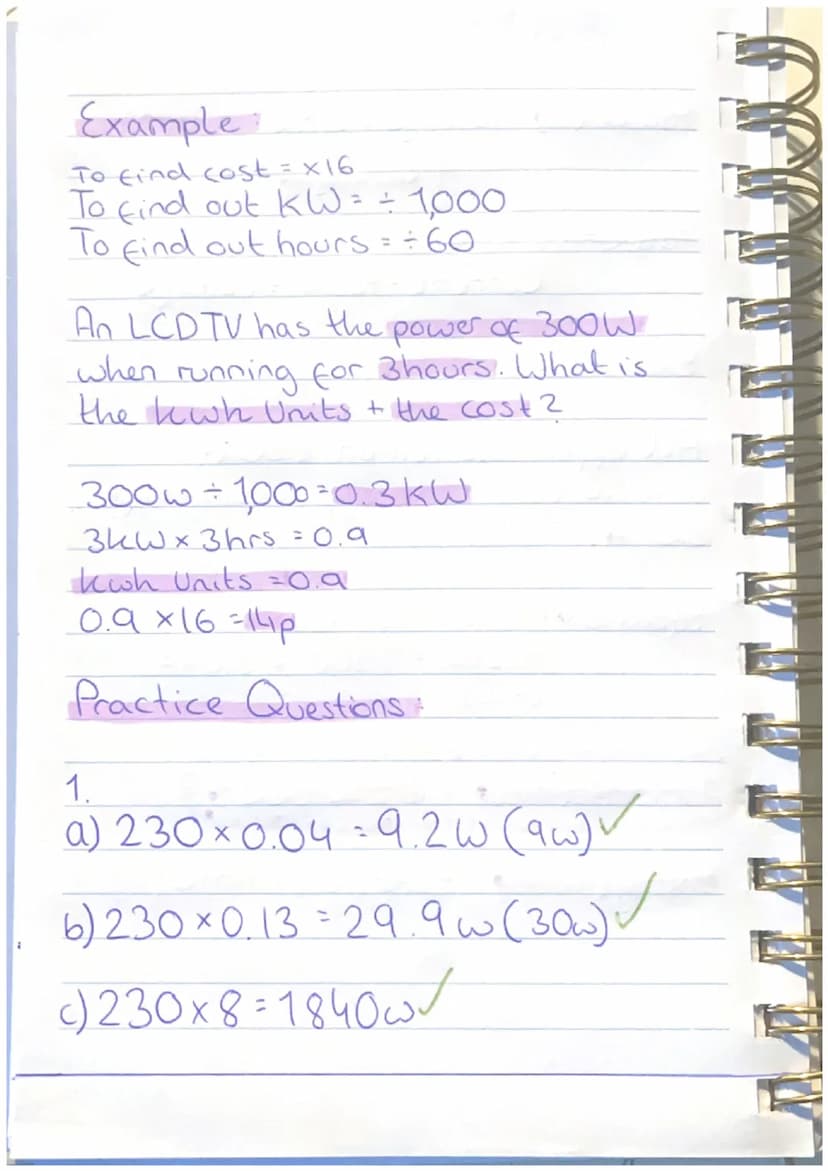 Example:
To find cost = ×16
To find out KW = ÷ 1,000
To find out hours = ÷60
An LCDTV has the power of 300W
when running for 3hours. What is
the kwh Units + the cost?
300w ÷ 1,000 = 0.3KW
3kW × 3hrs = 0.9
kwh Units = 0.9
0.9 ×16 = 14p
Practice Questions:
1.
a) 230×0.04 = 9.2W (9w) ✓
b) 230×0.13 = 29.9w (30w) ✓
c) 230×8 = 1840w ✓